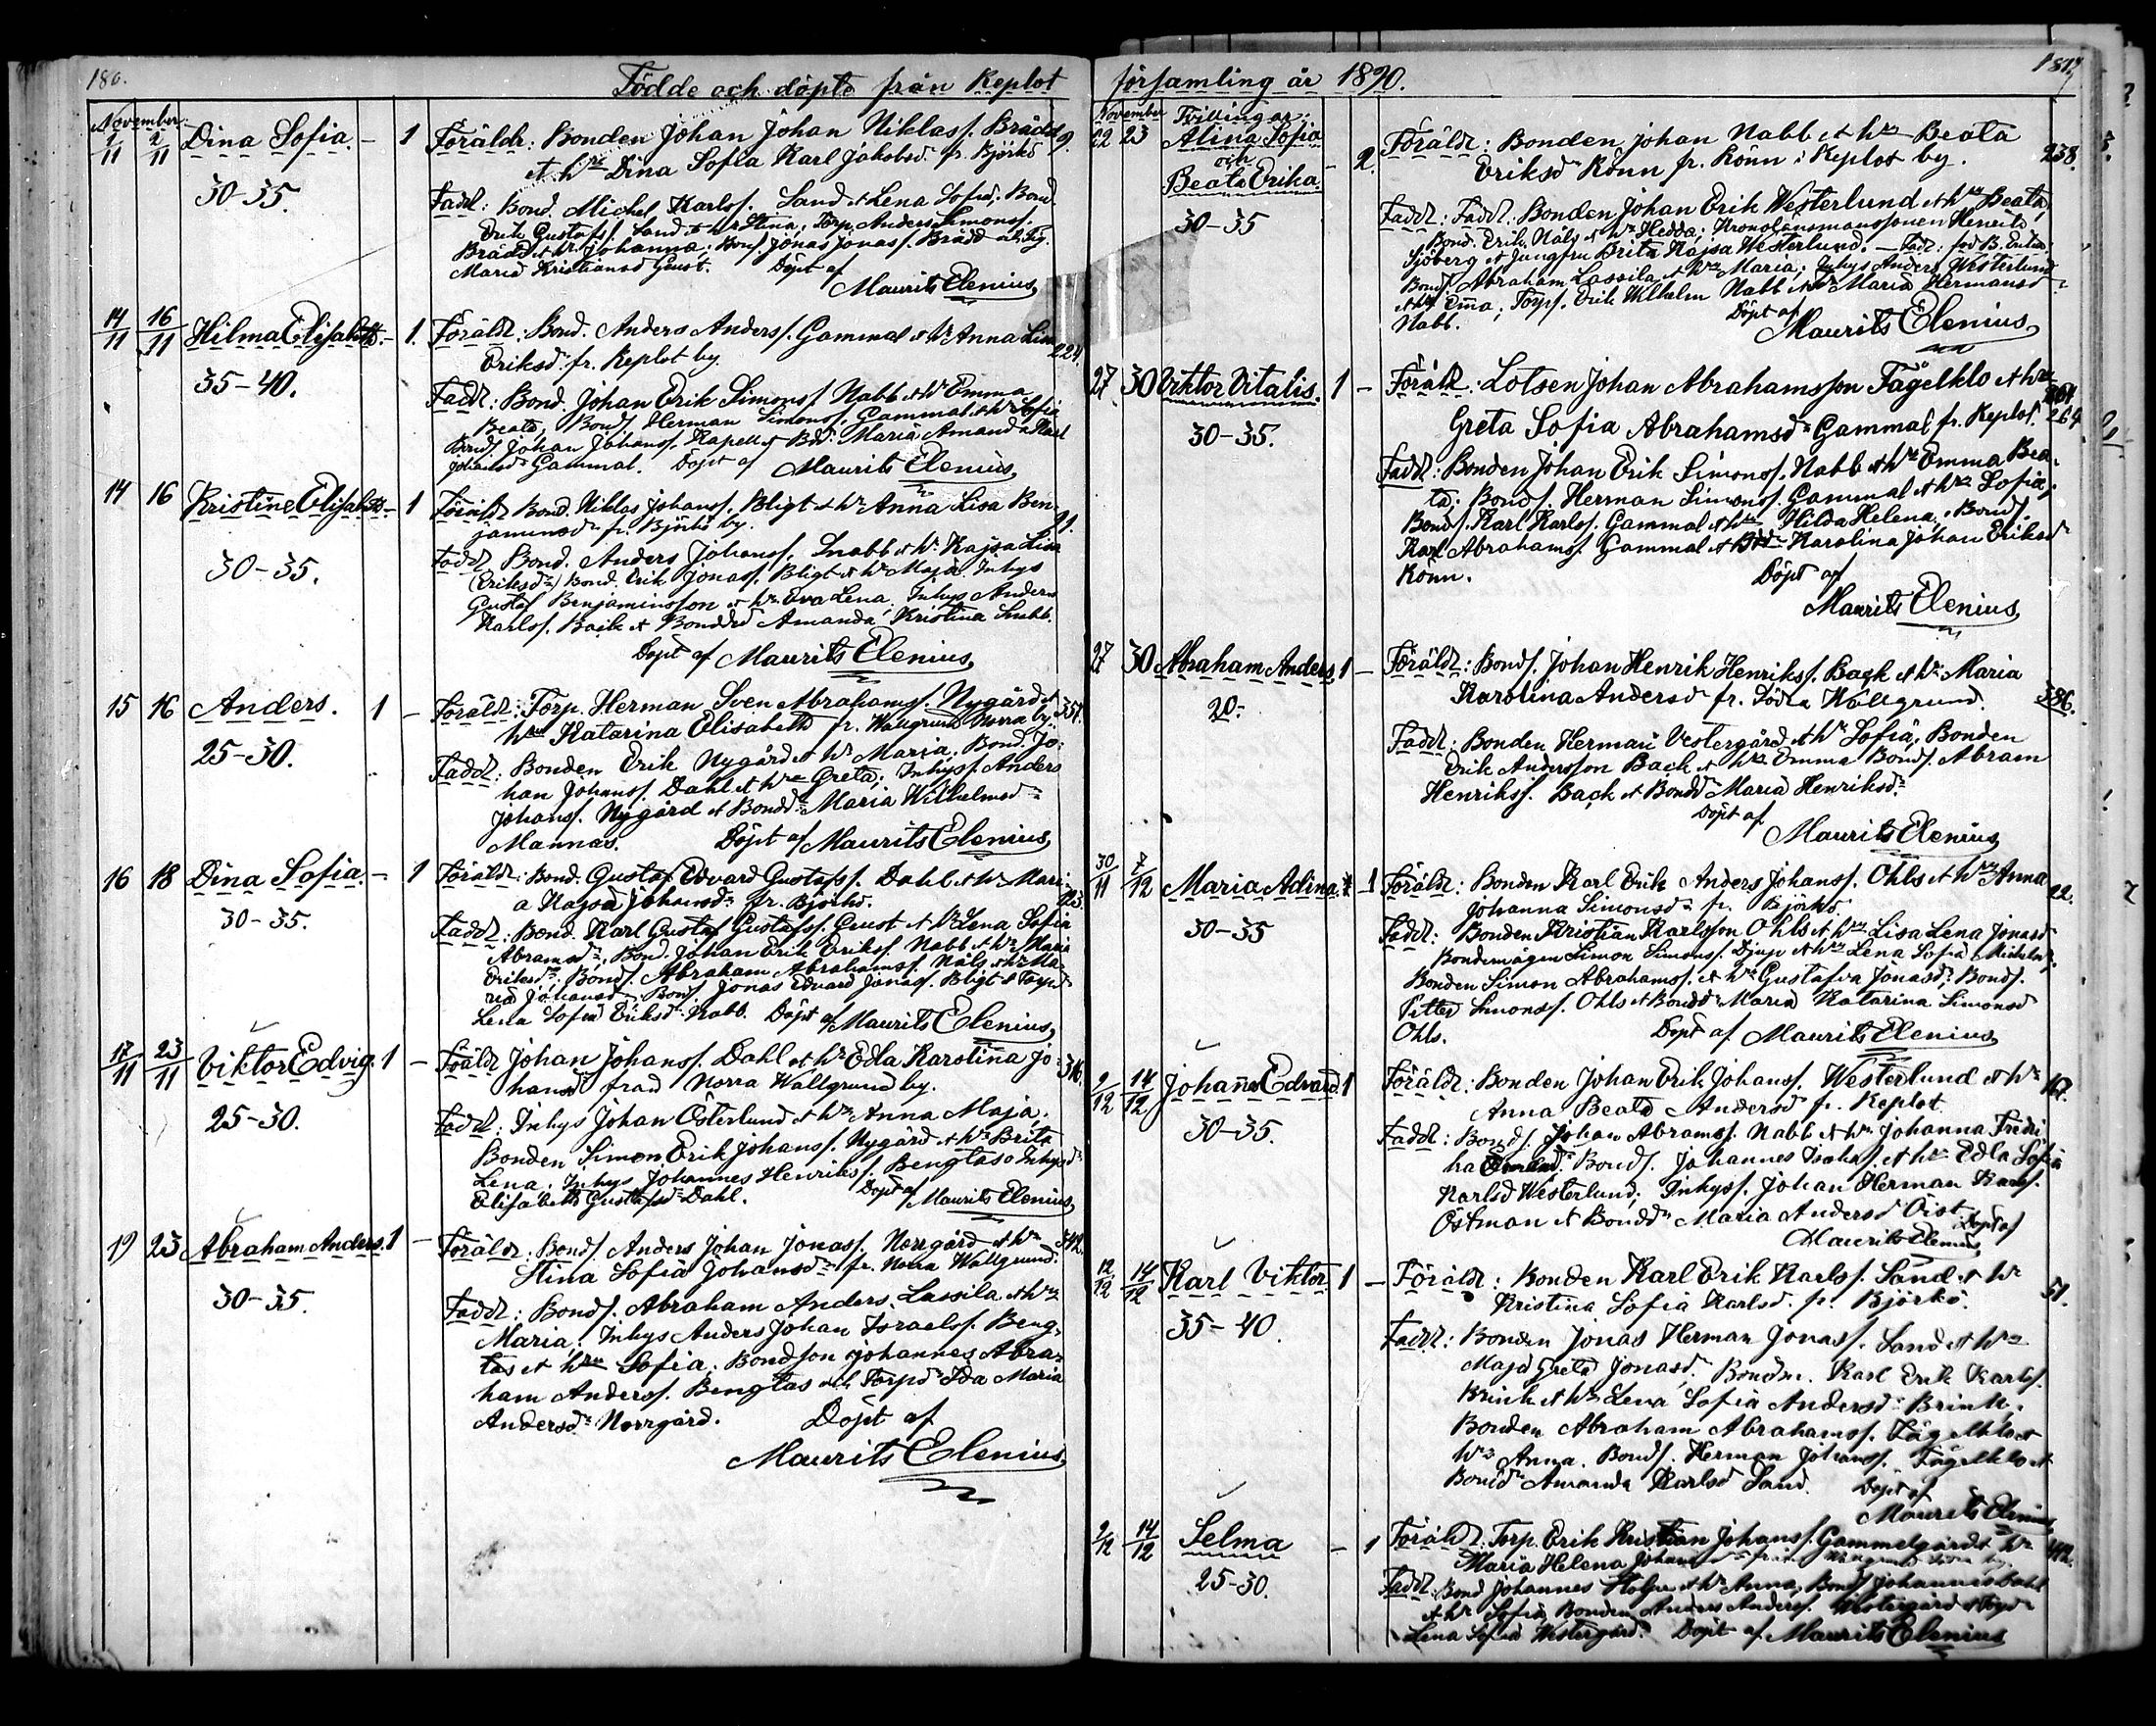 186.
Födde och döpte från Replot
November.
1/11 2/11 Dina Sofia. – 1 Föräldr: Bonden Johan Johan Niklass. Brädd 9.
et hr Dina Sofia Karl Jakobsd. fr. Björkö
30-35. Fadd: Bond. Michel Karlss. Sand et Lena Sofia; Bond.
Erik Gustafs. Sand et hr Stina; Torp. Anders Simonss.
Brädd et hr Johanna; Bons. Jonas Jonass. Brädd et
Maria Kristiansd Grust. Döpt af
Maurits Elenius
14/11 16/11 Hilma Elisabeth. – 1. Föräldr: Bond. Anders Anderss. Gammal et hr Anna Lisa 224.
Eriksd. fr. Replot by.
35-40. Fadd: Bond. Johan Erik Simonss Nabb et hr Emma
Beata; Bons. Herman Simonss. Gammal et hr Sofia
Bond. Johan Johanss. Kapell et Bdr. Maria Amanda Karl
Johansd Gammal. Döpt af Maurits Elenius
14 16 Kristine Elisabeth – 1 Föräldr Bond. Niklas Johanss. Bligt et hr Anna Lisa Ben-
jaminsd. fr. Björkö by.
30-35. Fadd Bond. Anders Johanss. Snabb et hr Kajsa Lisa
(Eriksd) Bond. Erik Jonass. Bligt et hr Maja. Inhys
Gustaf Benjaminsson et hr Eva Lena; Inhys Anders
Karlss. Back et Bondd Amanda Kristina Snabb.
Döpt af Maurits Elenius
15 16 Anders. 1 – Föräldr: Torp. Herman Sven Abrahamss. Nygård et 357.
hru Katarina Elisabeth fr. Wallgrund Norra by.
25-30. Fadd: Bonden Erik Nygård et hr Maria, Bond. Jo-
han Johanss. Dahl et hr Greta; Inhys. Anders
Johanss. Nygård et Bondd. Maria Wilhelmsd
Mannas. Döpt af Maurits Elenius
16 18 Dina Sofia. – 1 Föräldr: Bond. Gustaf Edvard Gustafss. Dahl et hr Mari- 23.
a Kajsa Johansd. fr. Björkö.
30-35. Fadd: Bond. Karl Gustaf Gustafss. Grust et hr Lena Sofia
Abramsd., Bond. Johan Erik Erikss. Nabb et hr Maria
Eriksd.; Bons. Abraham Abrahamss. Näls et hr Ma-
ria Johansd. Bons. Jonas Edvard Jonass. Bligt et Torpd
Lena Sofia Eriksd. Nabb. Döpt af Maurits Elenius
17/11 23/11 Viktor Edvig. 1 – Föräldr Johan Johanss. Dahl et hr Edla Karolina Jo- 316.
hansd från Norra Wallgrund by.
25-30. Fadd: Inhys Johan Österlund et hr Anna Maja;
Bonden Simon Erik Johanss. Nygård et hr Brita
Lena; Inhys Johannes Henrikss. Bengtas o Inhysd
Elisabeth Gustafsd Dahl. Döpt af Maurits Elenius
19 23 Abraham Anders. 1 – Föräldr: Bons. Anders Johan Jonass. Norrgård et hr 342.
Stina Sofia Johansd. fr. Norra Wallgrund.
30-35. Fadd: Bons. Abraham Anders. Lassila et hr
Maria; Inhys Anders Johan Israelss. Beng-
tas et hru Sofia. Bondson Johannes Abra-
ham Anderss. Bengtas och Torpd. Ida Maria
Andersd. Norrgård. Döpt af
Maurits Elenius
187.
församling år 1890.
November Tvillingar:
22 23 Alina Sofia
och
Beata Erika. – 2. Föräldr: Bonden Johan Nabb et hr Beata
Eriksd Rönn fr. Rönn i Replot by. 238.
30-35 Fadd: Fadd: Bonden Johan Erik Westerlund et hr Beata;
Bond. Erik Näls et hr Hedda; Kronolänsmanssonen Henrik
Sjöberg et Jungfru Brita Kajsa Westerlund. – Fadd: för B. Erika:
Bons. Abraham Lassila et hr Maria; Inhys Anders Westerlund
et hr Emma; Torps. Erik Wilhelm Nabb et hr Maria Hermansd
Nabb. Döpt af
Maurits Elenius
27 30 Viktor Vitalis. 1 – Föräldr: Lotsen Johan Abrahamsson Fågelklo et hr
Greta Sofia Abrahamsd. Gammal fr. Replot. 264
30-35. Fadd: Bonden Johan Erik Simonss. Nabb et hr Emma Bea-
ta; Bons. Herman Simonss. Gammal et hr Sofia;
Bons. Karl Karlss. Gammal et hr Hilda Helena, Bons.
Karl Abrahams. Gammal et Bdr Karolina Johan Eriksd
Rönn. Döpt af
Maurits Elenius
27 30 Abraham Anders 1 – Föräldr: Bons. Johan Henrik Henrikss. Back et hr Maria
Karolina Andersd fr. Södra Wallgrund. 386.
20- Fadd: Bonden Herman Vestergård et hr Sofia, Bonden
Erik Andersson Back et hr Emma Bons. Abram
Henrikss. Back et Bondd Maria Henriksd.
Döpt af
Maurits Elenius
30/11 7/12 Maria Adina. – 1 Föräldr: Bonden Karl Erik Anders Johanss. Ohls et hr Anna 22.
Johanna Simonsd fr. Björkö
30-35 Fadd: Bonden Kristian Karlsson Ohls et hr Lisa Lena Jonasd
Bondemågen Simon Simonss. Djup et hr Lena Sofia Michelsd;
Bonden Simon Abrahamss. et hr Gustafva Jonasd; Bons.
Petter Simonss. Ohls et Bondd Maria Katarina Simonsd
Ohls. Döpt af Maurits Elenius
9/12 14/12 Johannes Edvard. 1 Föräldr: Bonden Johan Erik Johanss. Westerlund et hr 167.
Anna Beata Andersd fr. Replot.
30-35. Fadd: Bons. Johan Abramss. Nabb et hr Johanna Fredri
ka Bons. Johannes et hr Edla Sofia
Karlsd Westerlund; Inhyss. Johan Herman Karlss.
Östman et Bondd Maria Andersd Öist. Döpt af
Maurits Elenius
12/12 14/12 Karl Viktor 1 – Föräldr: Bonden Karl Erik Karlss. Sand et hr 51.
Kristina Sofia Karlsd. fr. Björkö.
35-40. Fadd: Bonden Jonas Herman Jonass. Sand et hr
Maja Greta Jonasd; Bonden. Karl Erik Karlss.
Brink et hr Lena Sofia Andersd. Brink.
Bonden Abraham Abrahamss. Fågelklo et
hr Anna. Bons. Herman Johanss. Fågelklo et
Bondd Amanda Karlsd Sand. Döpt af
Maurits Elenius
9/12 14/12 Selma – 1 Föräldr. Torp. Erik Kristian Johanss. Gammelgård et hr 412.
Maria Helena
25-30. Fadd Bond Johannes Stolpe et hr Anna, Bons Johannes Dahl
et hr Sofia, Bonden Anders Anderss. Westergård et Torpd
Lena Sofia Westergård. Döpt af Maurits Elenius